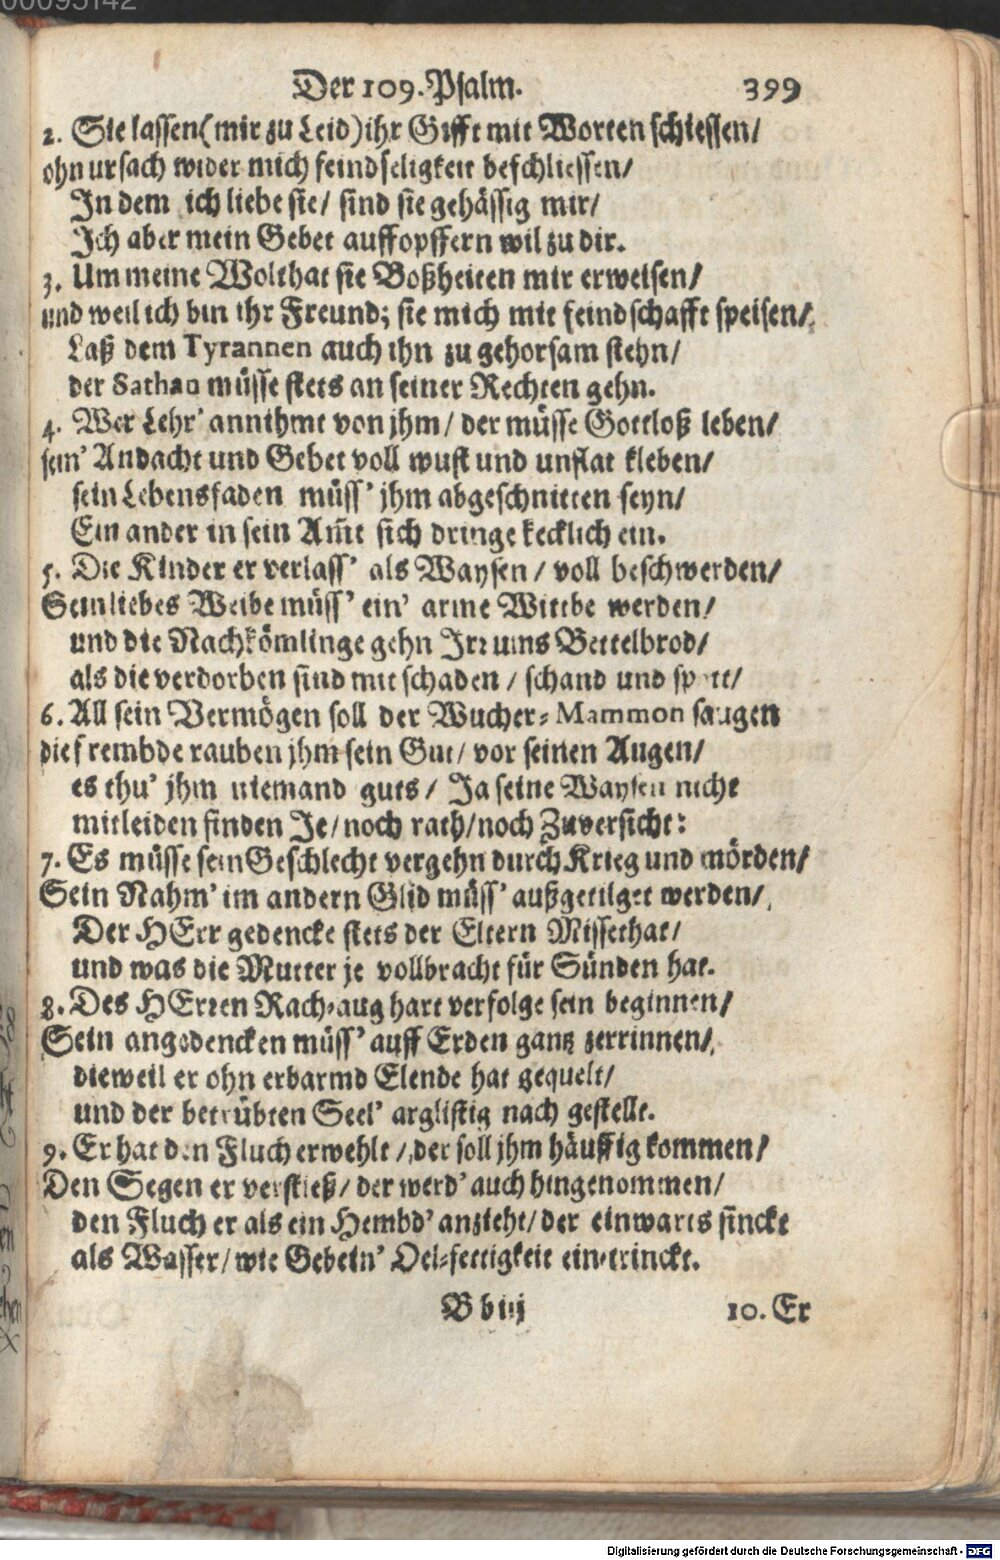 00095142
Der 109. Psalm. 399
2. Sie lassen (mir zu Leid) ihr Gifft mit Worten schiessen/
ohn ursach wider mich feindseligkeit beschliessen/
In dem ich liebe sie/ sind sie gehässig mir/
Ich aber mein Gebet auffopffern wil zu dir.
3. Um meine Wolthat sie Boßheiten mir erweisen/
und weil ich bin ihr Freund; sie mich mit feindschafft speisen/
Laß dem Tyrannen auch ihn zu gehorsam stehn/
der Sathan müsse stets an seiner Rechten gehn.
4. Wer Lehr' annihmt von jhm/ der müsse Gottloß leben/
sein' Andacht und Gebet voll wust und unflat kleben/
sein Lebensfaden müss' jhm abgeschnitten seyn/
Ein ander in sein Am̄t sich dringe kecklich ein.
5. Die Kinder er verlass' als Waysen/ voll beschwerden/
Sein liebes Weibe müss' ein' arme Wittbe werden/
und die Nachkömlinge gehn Irr ums Bettelbrod/
als die verdorben sind mit schaden/ schand und spott/
6. All sein Vermögen soll der Wucher-Mammon saugen
die frembde rauben jhm sein Gut/ vor seinen Augen/
es thu' jhm niemand guts/ Ja seine Waysen nicht
mitleiden finden Je/ noch rath/ noch Zuversicht:
7. Es müsse sein Geschlecht vergehn durch Krieg und mörden/
Sein Nahm' im andern Glid müss' außgetilget werden/
Der HErr gedencke stets der Eltern Missethat/
und was die Mutter je vollbracht für Sünden hat.
8. Des HErren Rach-aug hart verfolge sein beginnen/
Sein angedencken müss' auff Erden gantz zerrinnen/
dieweil er ohn erbarmd Elende hat gequelt/
und der betrübten Seel' arglistig nach gestellt.
9. Er hat den Fluch erwehlt/ der soll jhm häuffig kommen/
Den Segen er verstieß/ der werd' auch hingenommen/
den Fluch er als ein Hembd' anzieht/ der einwarts sinckt
als Wasser/ wie Gebein' Oel-fettigkeit ein-trinckt.
B b iij 10. Er
Digitalisierung gefördert durch die Deutsche Forschungsgemeinschaft - DFG